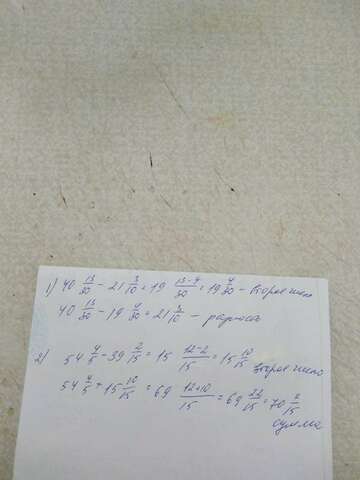 1) 40 13/30 - 21 3/10 = 19 13-9/30 = 19 4/30 - второе число
40 13/30 - 19 4/30 = 21 3/10 - разность
2) 54 4/5 - 39 2/15 = 15 12-2/15 = 15 10/15 второе число
54 4/5 + 15 10/15 = 69 12+10/15 = 69 22/15 = 70 7/15
сумма